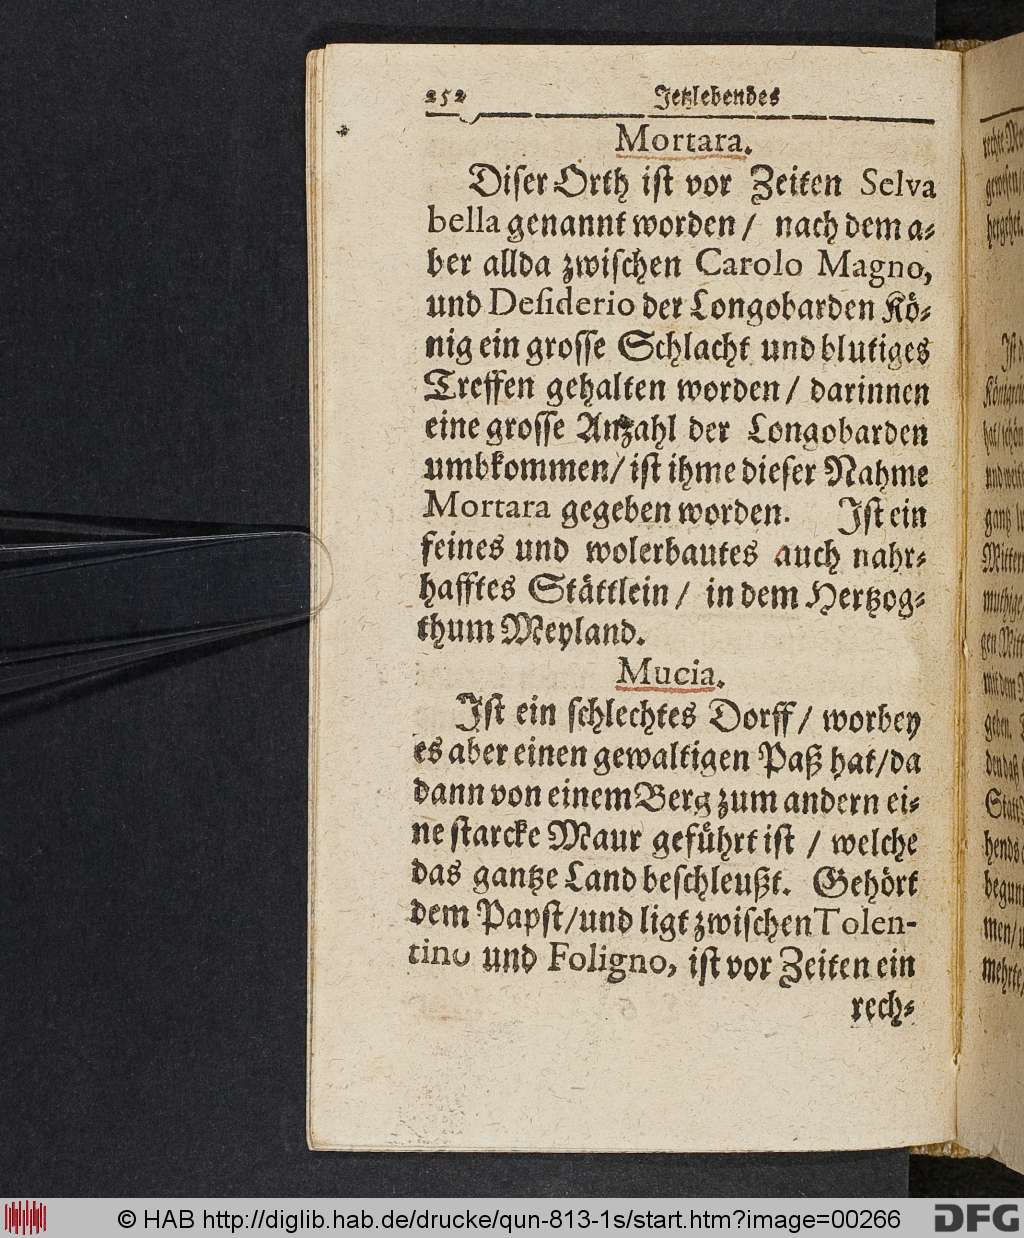 252 Jetzlebendes
Mortara.
Diser Orth ist vor Zeiten Selva
bella genannt worden / nach dem a-
ber allda zwischen Carolo Magno,
und Desiderio der Longobarden Kö-
nig ein grosse Schlacht und blutiges
Treffen gehalten worden / darinnen
eine grosse Antzahl der Longobarden
umbkommen / ist ihme dieser Nahme
Mortara gegeben worden. Ist ein
feines und wolerbautes auch nahr-
hafftes Stättlein / in dem Hertzog-
thum Meyland.
Mucia.
Ist ein schlechtes Dorff / worbey
es aber einen gewaltigen Paß hat / da
dann von einem Berg zum andern ei-
ne starcke Maur geführt ist / welche
das gantze Land beschleußt. Gehört
dem Papst / und ligt zwischen Tolen-
tino und Foligno, ist vor Zeiten ein
rech-
© HAB http://diglib.hab.de/drucke/qun-813-1s/start.htm?image=00266
DFG